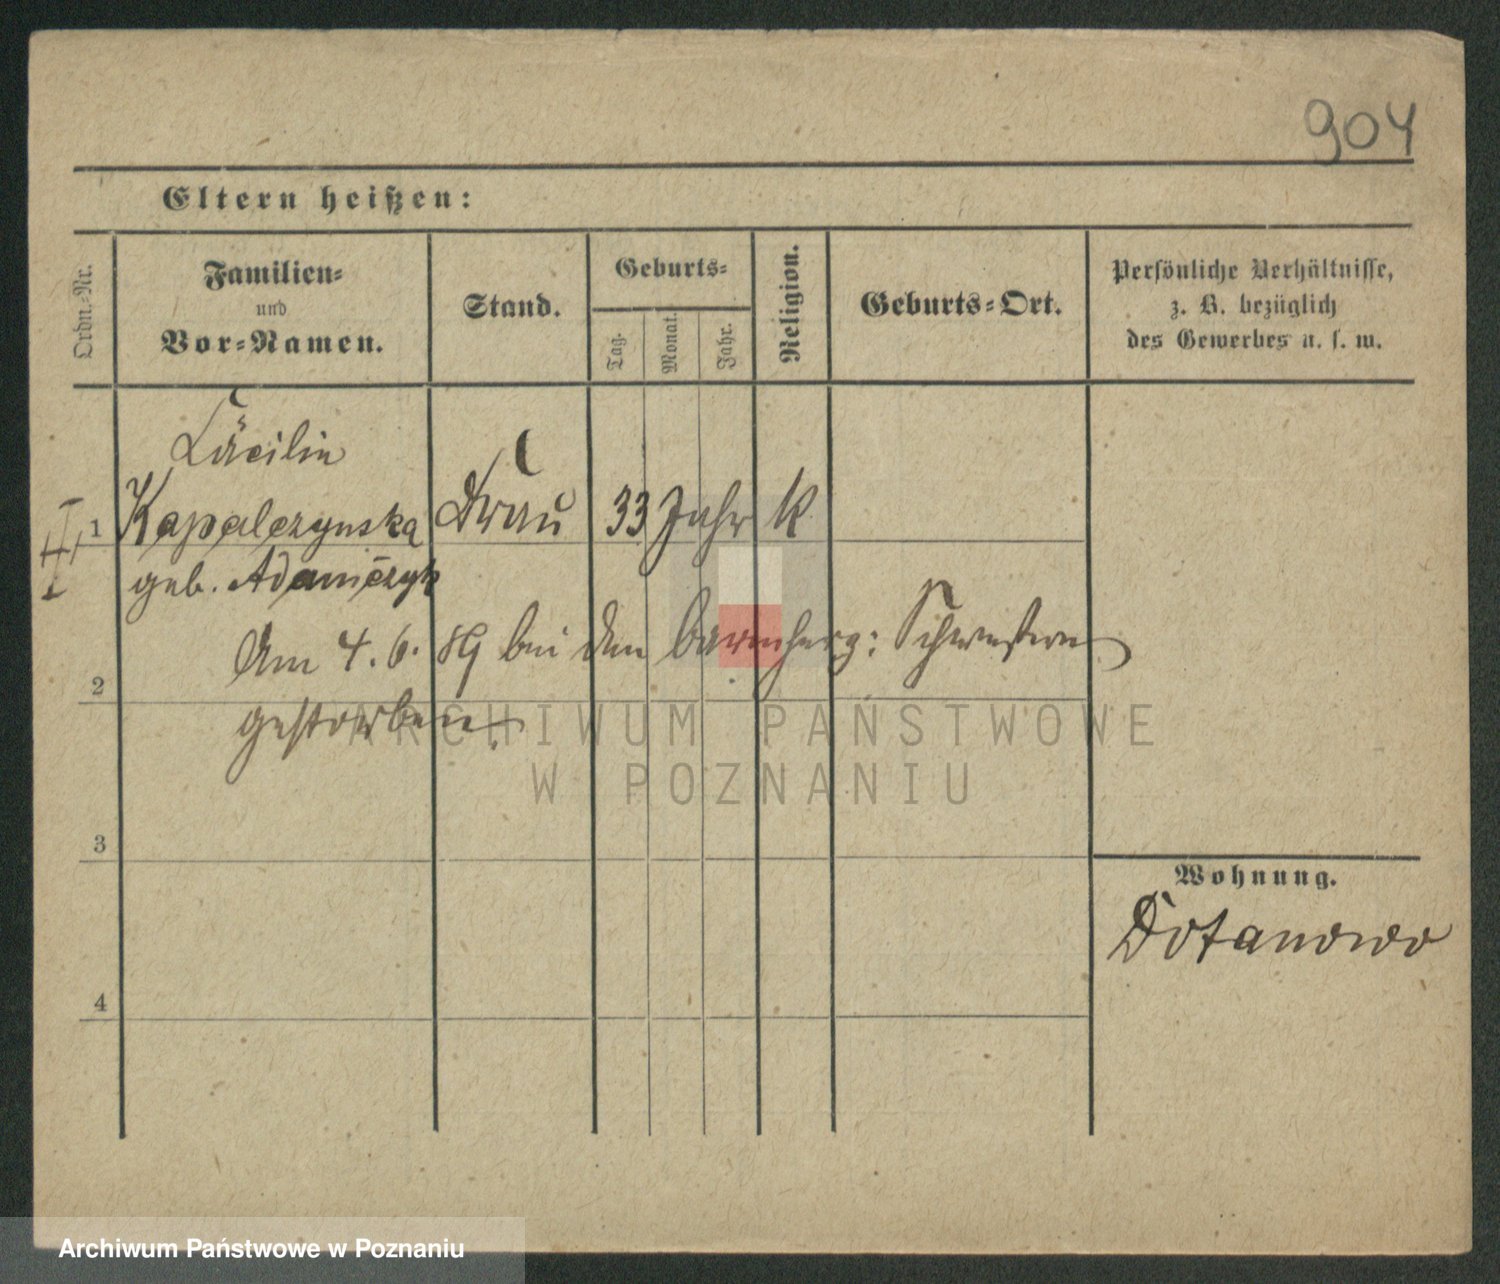 904
Eltern heißen:
Ordn.-Nr.
Familien-
und
Vor-Namen.
Stand.
Geburts-
Tag.
Monat.
Jahr.
Religion.
Geburts-Ort.
Persönliche Verhältnisse,
z. B. bezüglich
des Gewerbes u. s. w.
Cäcilia
1 Kapalczynska Frau 33 Jahr k
geb. Adamczyk
Am 4. 6. 89 bei den barmherzg: Schwestern
2
gestorben.
3
Wohnung.
4
ARCHIWUM PAŃSTWOWE
W POZNANIU
Archiwum Państwowe w Poznaniu